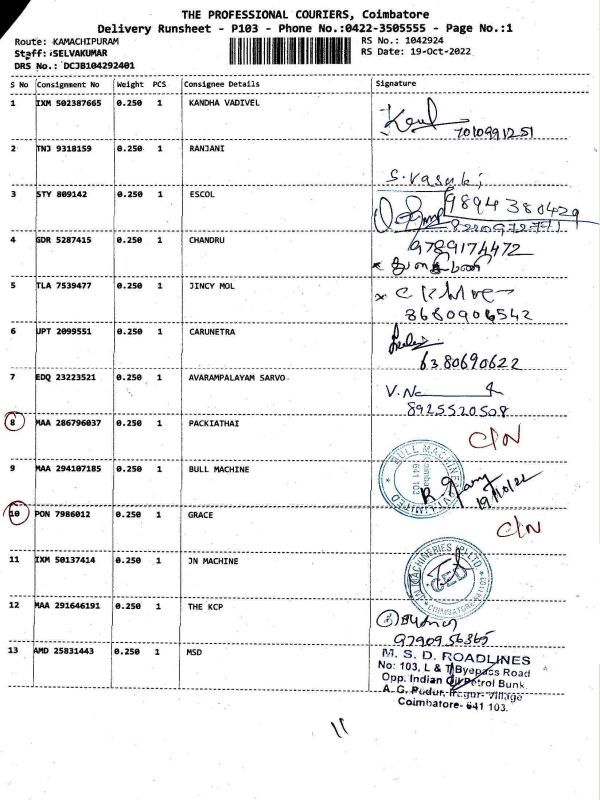 THE PROFESSIONAL COURIERS, Coimbatore
Delivery Runsheet - P103 - Phone No.:0422-3505555 - Page No.:1
Route: KAMACHIPURAM
RS No.: 1042924
Staff: SELVAKUMAR
RS Date: 19-Oct-2022
DRS No.: DCJB104292401
S No Consignment No Weight PCS Consignee Details Signature
1 IXM 502387665 0.250 1 KANDHA VADIVEL
7010991251
2 TNJ 9318159 0.250 1 RANJANI S. Vasuki
3 STY 809142 0.250 1 ESCOL 9894380429
4 GDR 5287415 0.250 1 CHANDRU 9789174472
5 TLA 7539477 0.250 1 JINCY MOL
8680906542
6 UPT 2099551 0.250 1 CARUNETRA
6380690622
7 EDQ 23223521 0.250 1 AVARAMPALAYAM SARVO
8925520508
8 MAA 286796037 0.250 1 PACKIATHAI C/N
9 MAA 294107185 0.250 1 BULL MACHINE
BULL MACHINE
641 103
LIMITED
19/10/22
10 PON 7986012 0.250 1 GRACE C/N
11 IXM 50137414 0.250 1 JN MACHINE
MACHINERIES P LTD.
COIMBATORE-641103
12 MAA 291646191 0.250 1 THE KCP
9790956365
13 AMD 25831443 0.250 1 MSD
M. S. D. ROADLINES
No: 103, L & T Byepass Road
Opp. Indian Oil Petrol Bunk
A. G. Pudur, Irugur- Village
Coimbatore- 641 103.
11